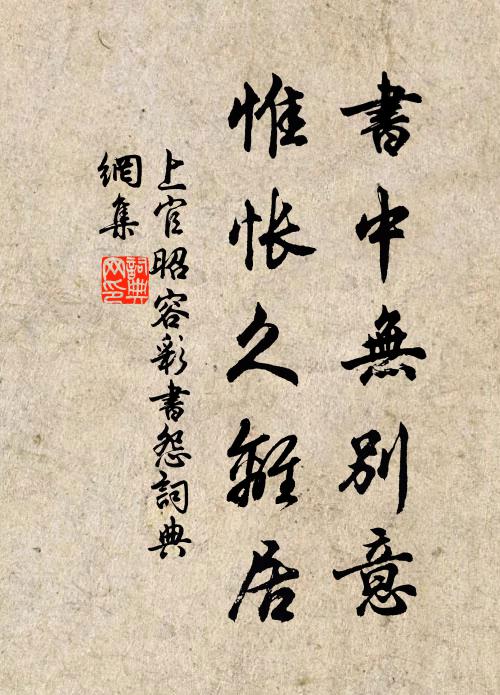 書中無別意
惟悵久離居
上官昭容彩書怨詞典
網集
詞典
网印